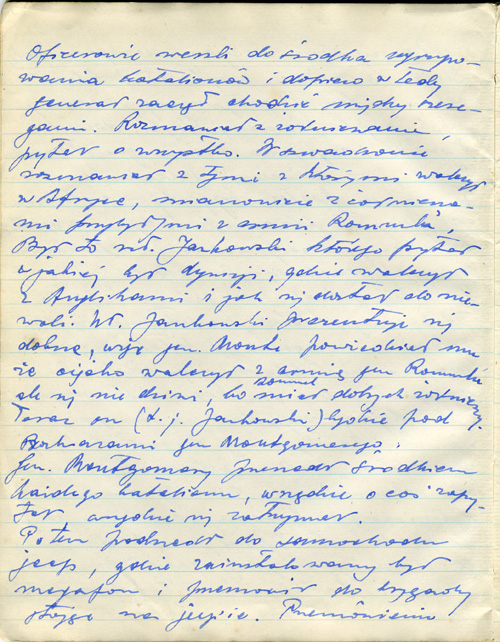 Oficerowie weszli do środka ugrupo-
wania batalionów i dopiero wtedy
generał zaczął chodzić między szere-
gami. Rozmawiał z żołnierzami,
pytał o wszystko. W szwadronie
rozmawiał z tymi z którymi walczył
w Afryce, mianowicie z żołnierza-
mi przybyłymi z armii Rommla,
Był to uł. Jankowski którego pytał
w jakiej był dywizji, gdzie walczył
z Anglikami i jak się dostał do nie-
woli. Uł. Jankowski prezentuje się
dobrze, więc gen. Monte powiedział mu
że ciężko walczył z armią gen Rommla
ale się nie dziwi, bo Rommel miał dobrych żołnierzy.
Teraz on (t. j. Jankowski) będzie pod
Rozkazami gen Montgomerego.
Gen. Montgomery przeszedł środkiem
każdego batalionu, wszędzie o coś zapy-
tał wszędzie się zatrzymał.
Potem podszedł do samochodu
jeep, gdzie zainstalowany był
megafon i przemówił do brygady
stojąc na jeepie. Przemówienie